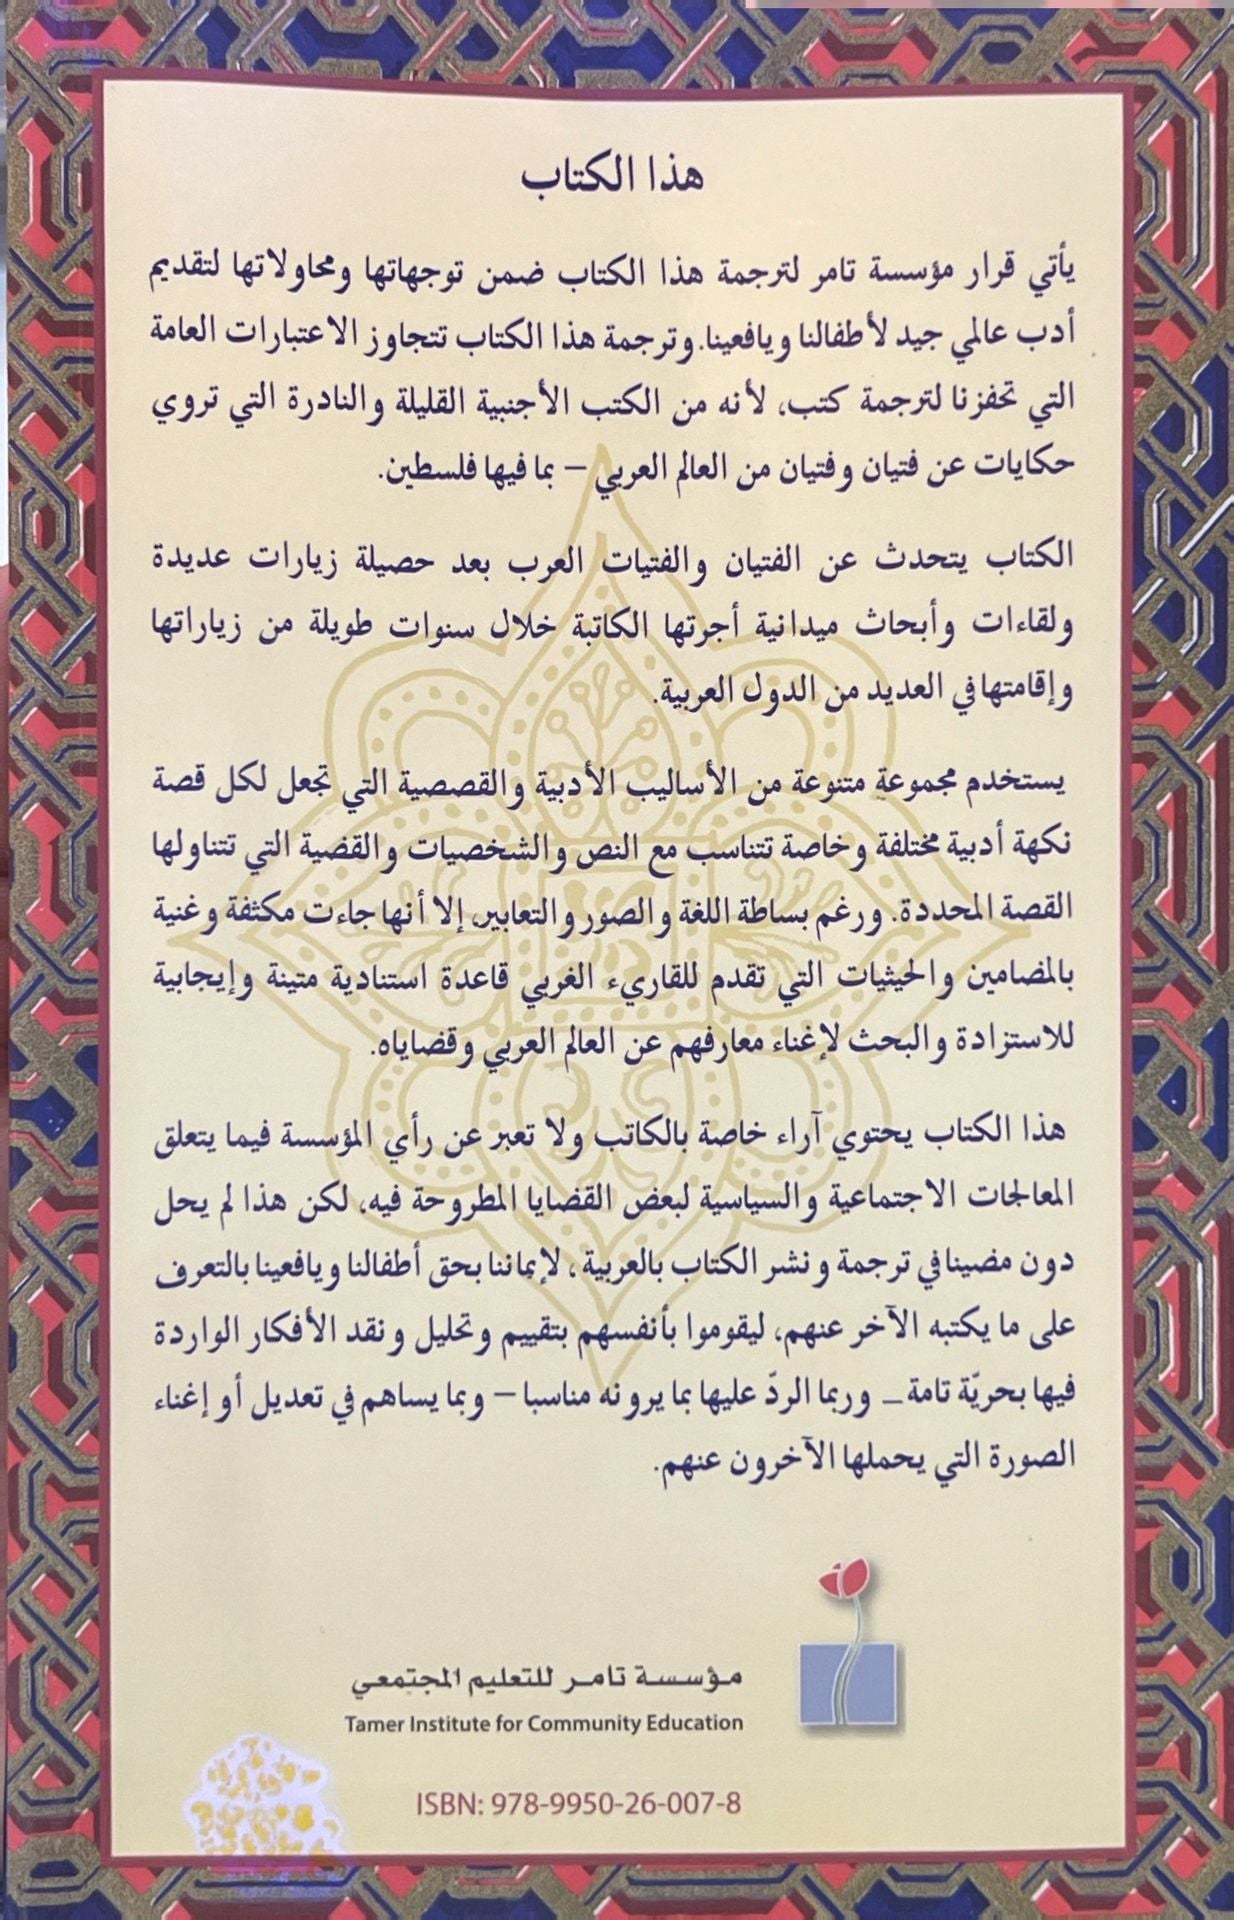 هذا الكتاب
يأتي قرار مؤسسة تامر لترجمة هذا الكتاب ضمن توجهاتها ومحاولاتها لتقديم
أدب عالمي جيد لأطفالنا ويافعينا. وترجمة هذا الكتاب تتجاوز الاعتبارات العامة
التي تحفزنا لترجمة كتب، لأنه من الكتب الأجنبية القليلة والنادرة التي تروي
حكايات عن فتيان وفتيان من العالم العربي – بما فيها فلسطين.
الكتاب يتحدث عن الفتيان والفتيات العرب بعد حصيلة زيارات عديدة
ولقاءات وأبحاث ميدانية أجرتها الكاتبة خلال سنوات طويلة من زياراتها
وإقامتها في العديد من الدول العربية.
يستخدم مجموعة متنوعة من الأساليب الأدبية والقصصية التي تجعل لكل قصة
نكهة أدبية مختلفة وخاصة تتناسب مع النص والشخصيات والقضية التي تتناولها
القصة المحددة. ورغم بساطة اللغة والصور والتعابير، إلا أنها جاءت مكثفة وغنية
بالمضامين والحيثيات التي تقدم للقاريء الغربي قاعدة استنادية متينة وإيجابية
للاستزادة والبحث لإغناء معارفهم عن العالم العربي وقضاياه.
هذا الكتاب يحتوي آراء خاصة بالكاتب ولا تعبر عن رأي المؤسسة فيما يتعلق
المعالجات الاجتماعية والسياسية لبعض القضايا المطروحة فيه، لكن هذا لم يحل
دون مضينا في ترجمة ونشر الكتاب بالعربية، لإيماننا بحق أطفالنا ويافعينا بالتعرف
على ما يكتبه الآخر عنهم، ليقوموا بأنفسهم بتقييم وتحليل ونقد الأفكار الواردة
فيها بحريّة تامة_ وربما الردّ عليها بما يرونه مناسبا – وبما يساهم في تعديل أو إغناء
الصورة التي يحملها الآخرون عنهم.
مؤسسة تامر للتعليم المجتمعي
Tamer Institute for Community Education
ISBN: 978-9950-26-007-8